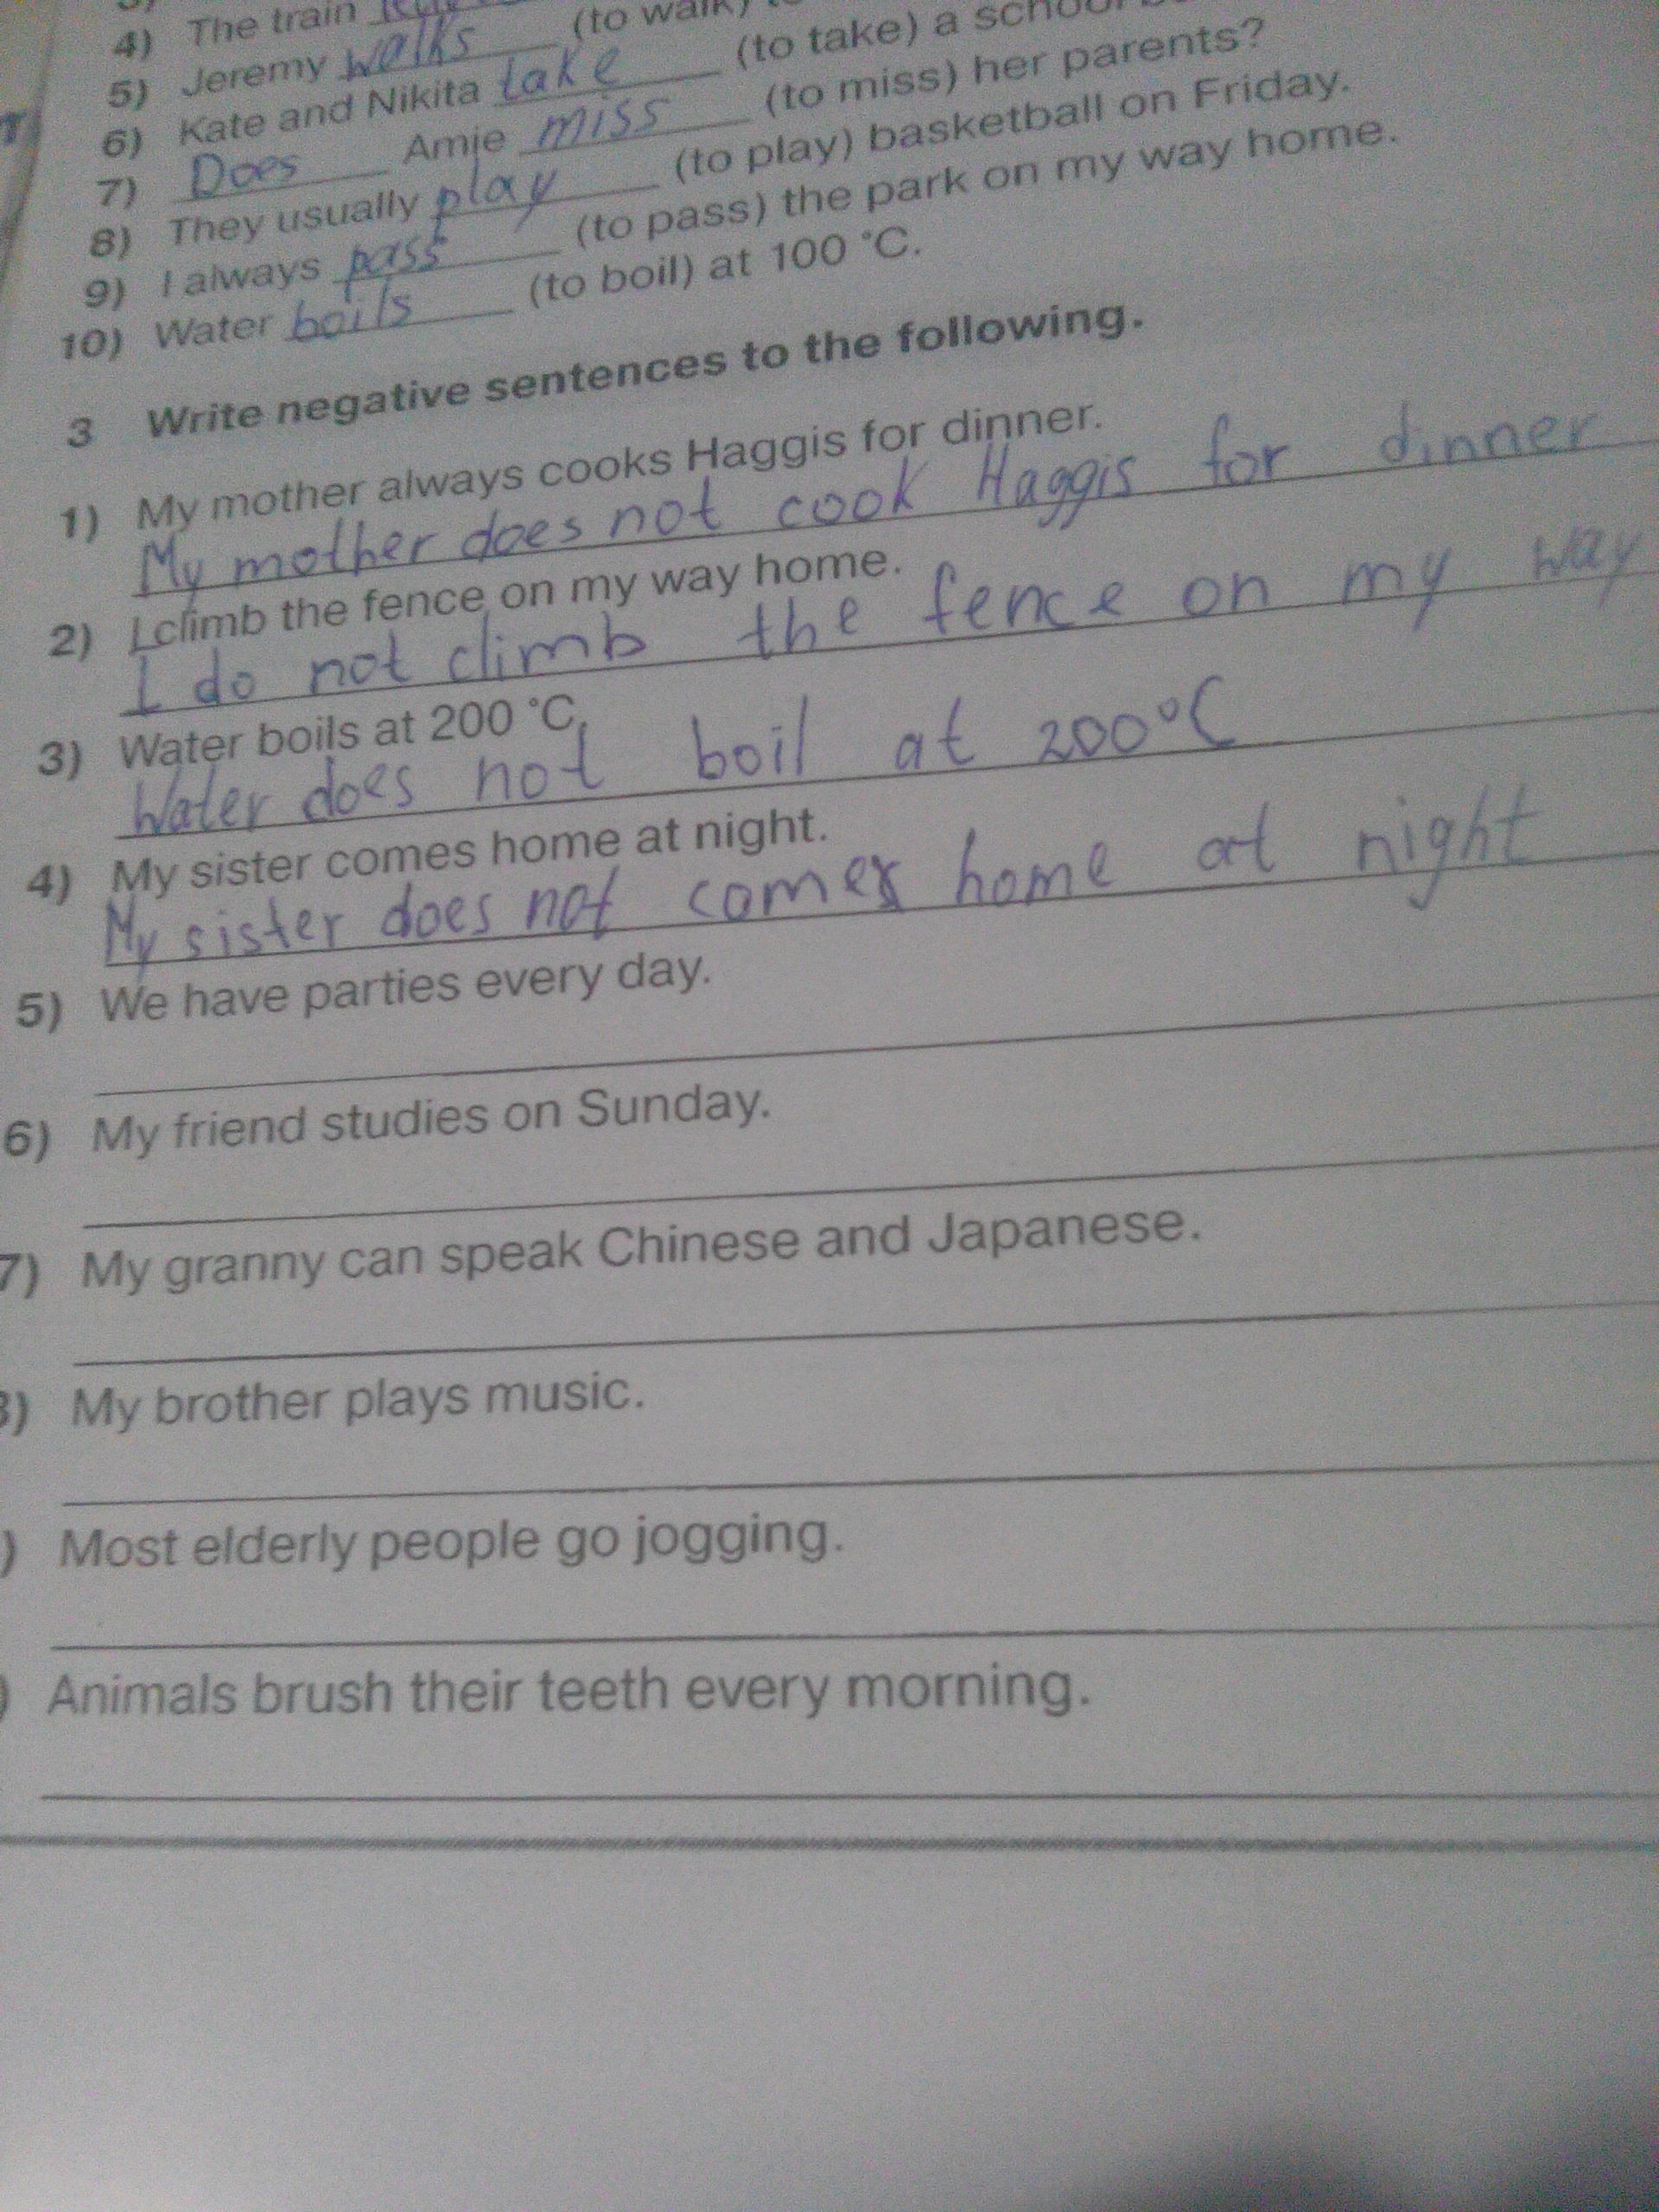 4) The train
5) Jeremy walks (to walk)
6) Kate and Nikita take (to take) a school
7) Does Amie miss (to miss) her parents?
8) They usually play (to play) basketball on Friday.
9) I always pass (to pass) the park on my way home.
10) Water boils (to boil) at 100 °C.
3 Write negative sentences to the following.
1) My mother always cooks Haggis for dinner.
My mother does not cook Haggis for dinner
2) I climb the fence on my way home.
I do not climb the fence on my way
3) Water boils at 200 °C.
Water does not boil at 200°C
4) My sister comes home at night.
My sister does not come home at night
5) We have parties every day.
6) My friend studies on Sunday.
7) My granny can speak Chinese and Japanese.
) My brother plays music.
) Most elderly people go jogging.
) Animals brush their teeth every morning.